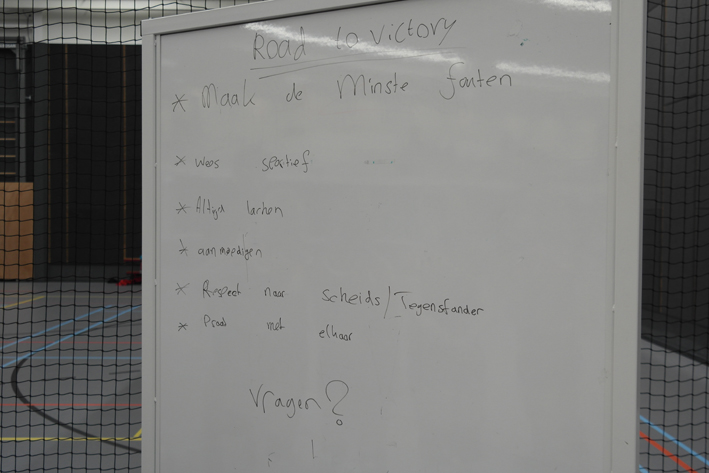 Road to victory
* Maak de Minste fouten
* wees sportief
* Altijd lachen
* aanmoedigen
* Respect naar scheids/Tegenstander
* Praat met elkaar
Vragen?